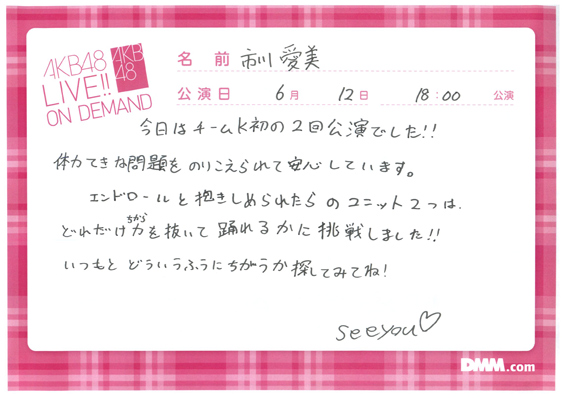 AKB48
LIVE!!
ON DEMAND
AKB
48
名前 市川愛美
公演日 6月 12日 18:00 公演
今日はチームK初の2回公演でした!!
体力てきな問題をのりこえられて安心しています。
エンドロールと抱きしめられたらのユニット2つは、
どれだけ力を抜いて踊れるかに挑戦しました!!
ちから
いつもとどういうふうにちがうか探してみてね!
seeyou♡
DMM.com